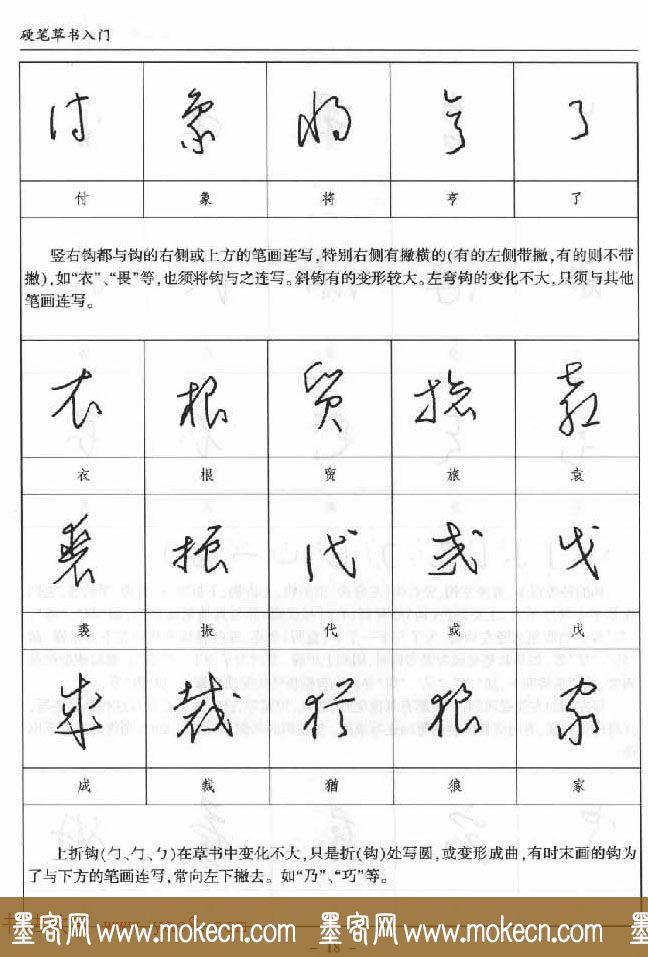 硬笔草书入门
付 象 将 亨 了
付 象 将 亨 了
竖右钩都与钩的右侧或上方的笔画连写,特别右侧有撇横的(有的左侧带撇,有的则不带
撇),如“衣”、“畏”等,也须将钩与之连写。斜钩有的变形较大。左弯钩的变化不大,只须与其他
笔画连写。
衣 根 贸 旅 袁
衣 根 贸 旅 袁
裘 振 代 或 戊
裘 振 代 或 戊
成 裁 猶 狼 家
成 裁 猶 狼 家
上折钩(勹、勹、㇉)在草书中变化不大,只是折(钩)处写圆,或变形成曲,有时末画的钩为
了与下方的笔画连写,常向左下撇去。如“乃”、“巧”等。
墨客网 www.mokecn.com 墨客网 www.mokecn.com
- 18 -